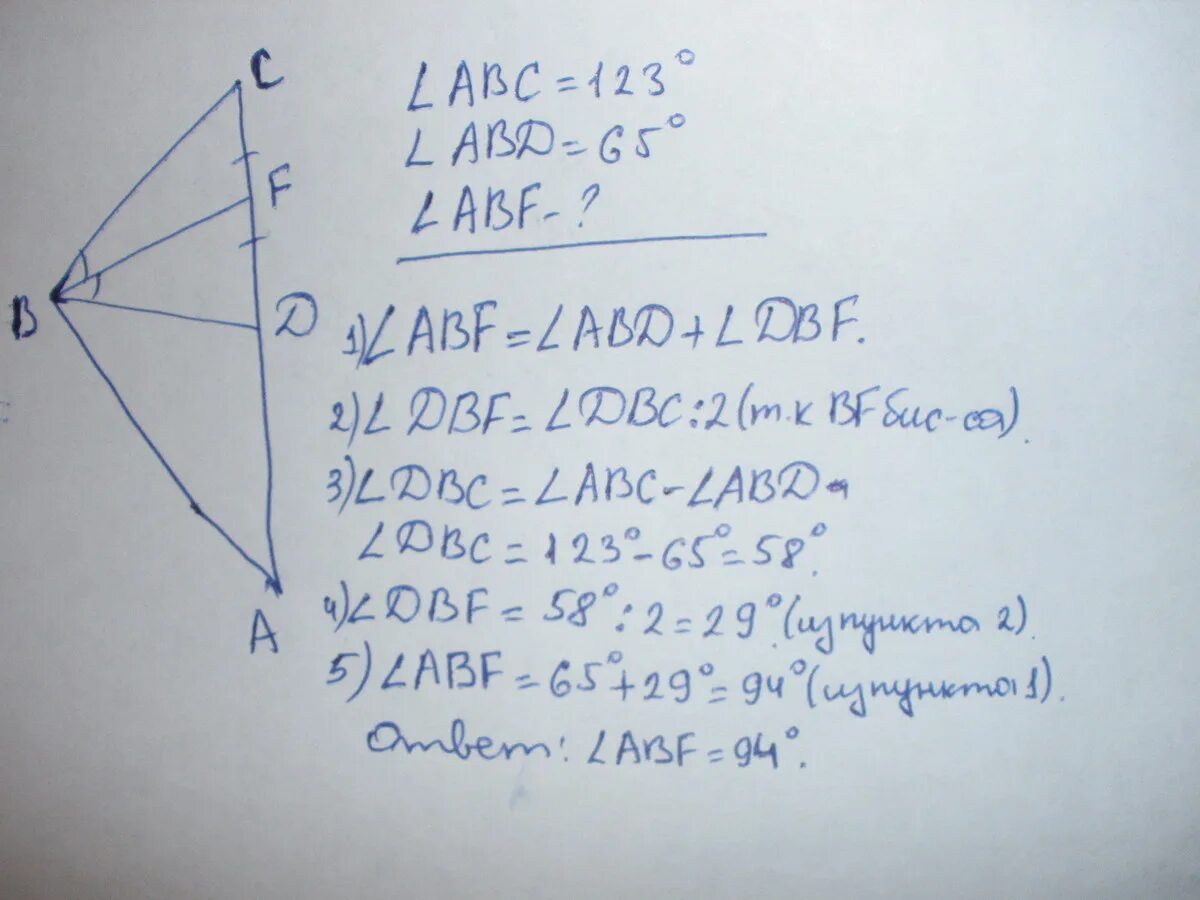 C
F
B
D
A
∠ABC=123°
∠ABD=65°
∠ABF-?
1)∠ABF=∠ABD+∠DBF.
2)∠DBF=∠DBC:2(т.к BF бис-са).
3)∠DBC=∠ABC-∠ABD
∠DBC=123°-65°=58°.
4)∠DBF=58°:2=29°(из пункта 2).
5)∠ABF=65°+29°=94°(из пункта 1).
Ответ: ∠ABF=94°.